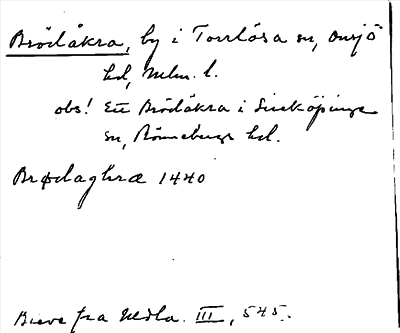 Brödåkra, by i Torrlösa sn, Onsjö
hd, Mlm. l.
obs! Ett Brödåkra i Sireköpinge
sn, Rönnebergs hd.
Brødaghræ 1440
Breve fra Udla. III, 545.